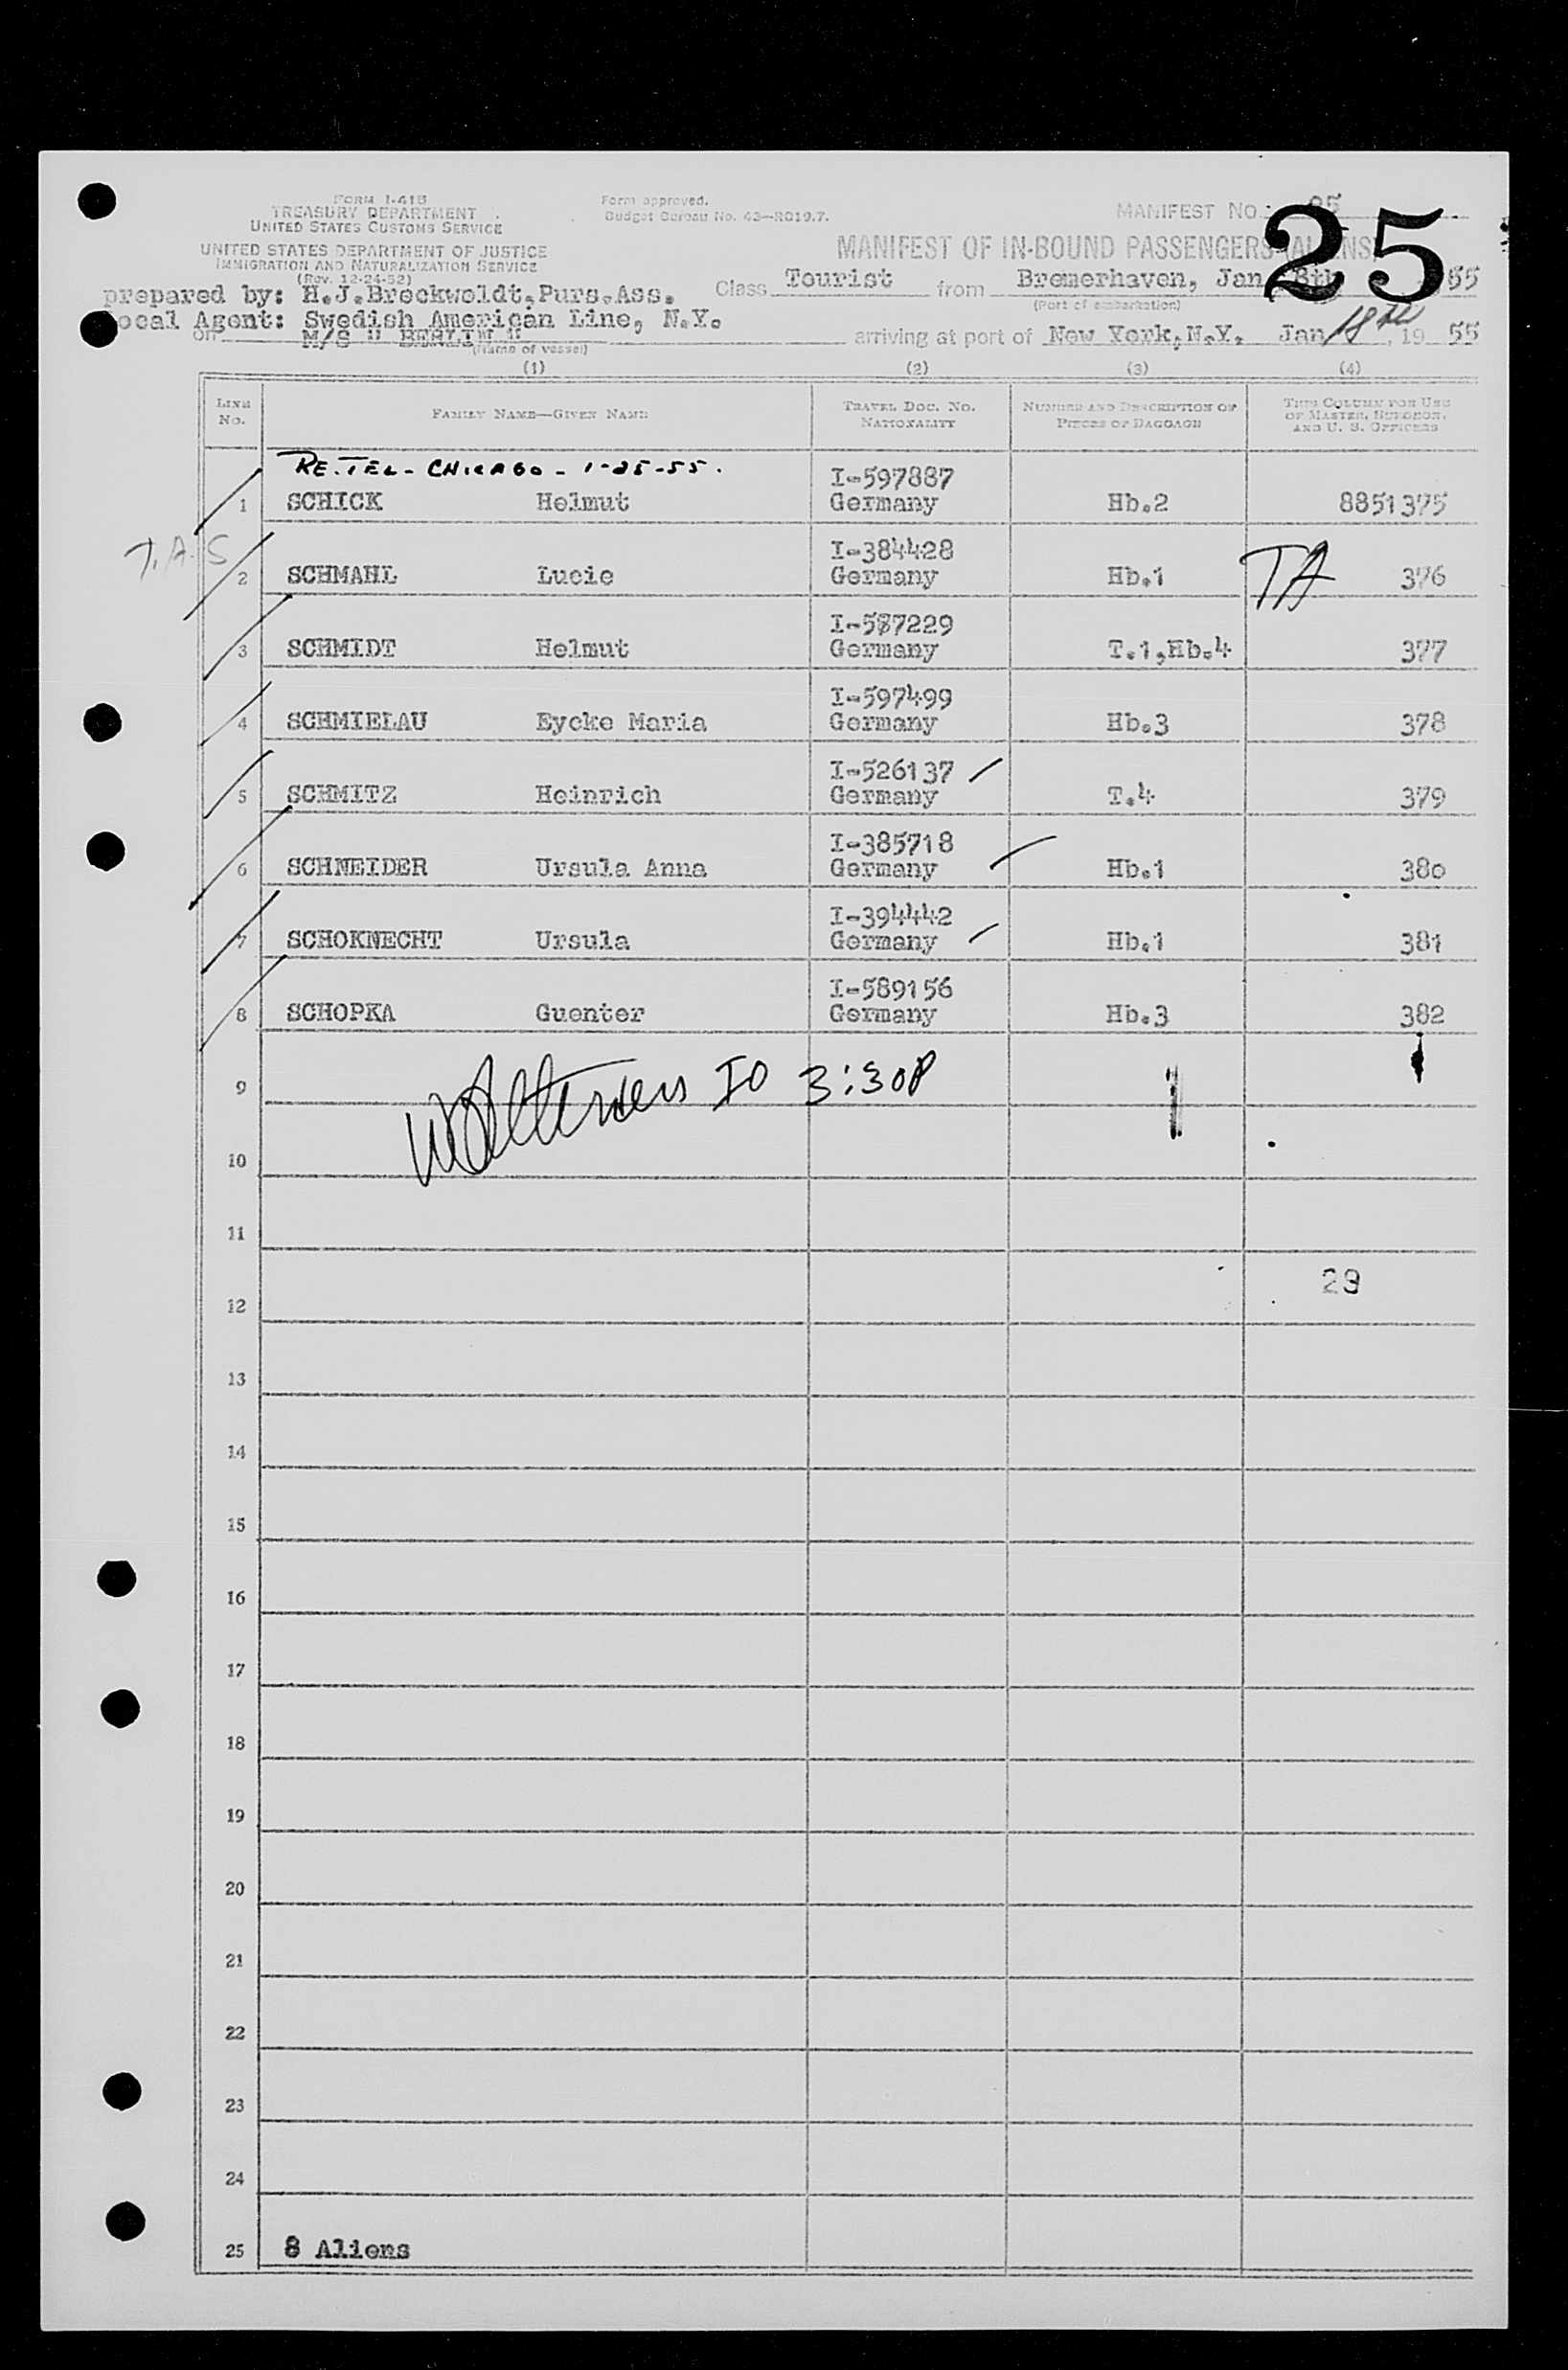 FORM I-418
TREASURY DEPARTMENT
UNITED STATES CUSTOMS SERVICE
UNITED STATES DEPARTMENT OF JUSTICE
IMMIGRATION AND NATURALIZATION SERVICE
(Rev. 12-24-52)
Form approved.
Budget Bureau No. 43-R019.7.
MANIFEST No. 25
25
MANIFEST OF IN-BOUND PASSENGERS (ALIENS)
prepared by: H.J.Brockwoldt,Purs.Ass. Class Tourist from Bremerhaven, Jan. 8th 55
(Port of embarkation)
Local Agent: Swedish American Line, N.Y.
on M/S " BERLIN " arriving at port of New York,N.Y. Jan 18th, 19 55
(Name of vessel)
(1) (2) (3) (4)
LINE No. FAMILY NAME—GIVEN NAME TRAVEL DOC. NO. NATIONALITY NUMBER AND DESCRIPTION OF PIECES OF BAGGAGE THIS COLUMN FOR USE OF MASTER, SURGEON, AND U. S. OFFICERS
RE. TEL - CHICAGO - 1-25-55.
I-597887
1 SCHICK Helmut Germany Hb.2 8851375
T.A.S
I-384428
2 SCHMAHL Lucie Germany Hb.1 TA 376
I-587229
3 SCHMIDT Helmut Germany T.1,Hb.4 377
I-597499
4 SCHMIELAU Eycke Maria Germany Hb.3 378
I-526137
5 SCHMITZ Heinrich Germany T.4 379
I-385718
6 SCHNEIDER Ursula Anna Germany Hb.1 380
I-394442
7 SCHOKNECHT Ursula Germany Hb.1 381
I-589156
8 SCHOPKA Guenter Germany Hb.3 382
IO 3:30P
9
10
11
29
12
13
14
15
16
17
18
19
20
21
22
23
24
25 8 Aliens